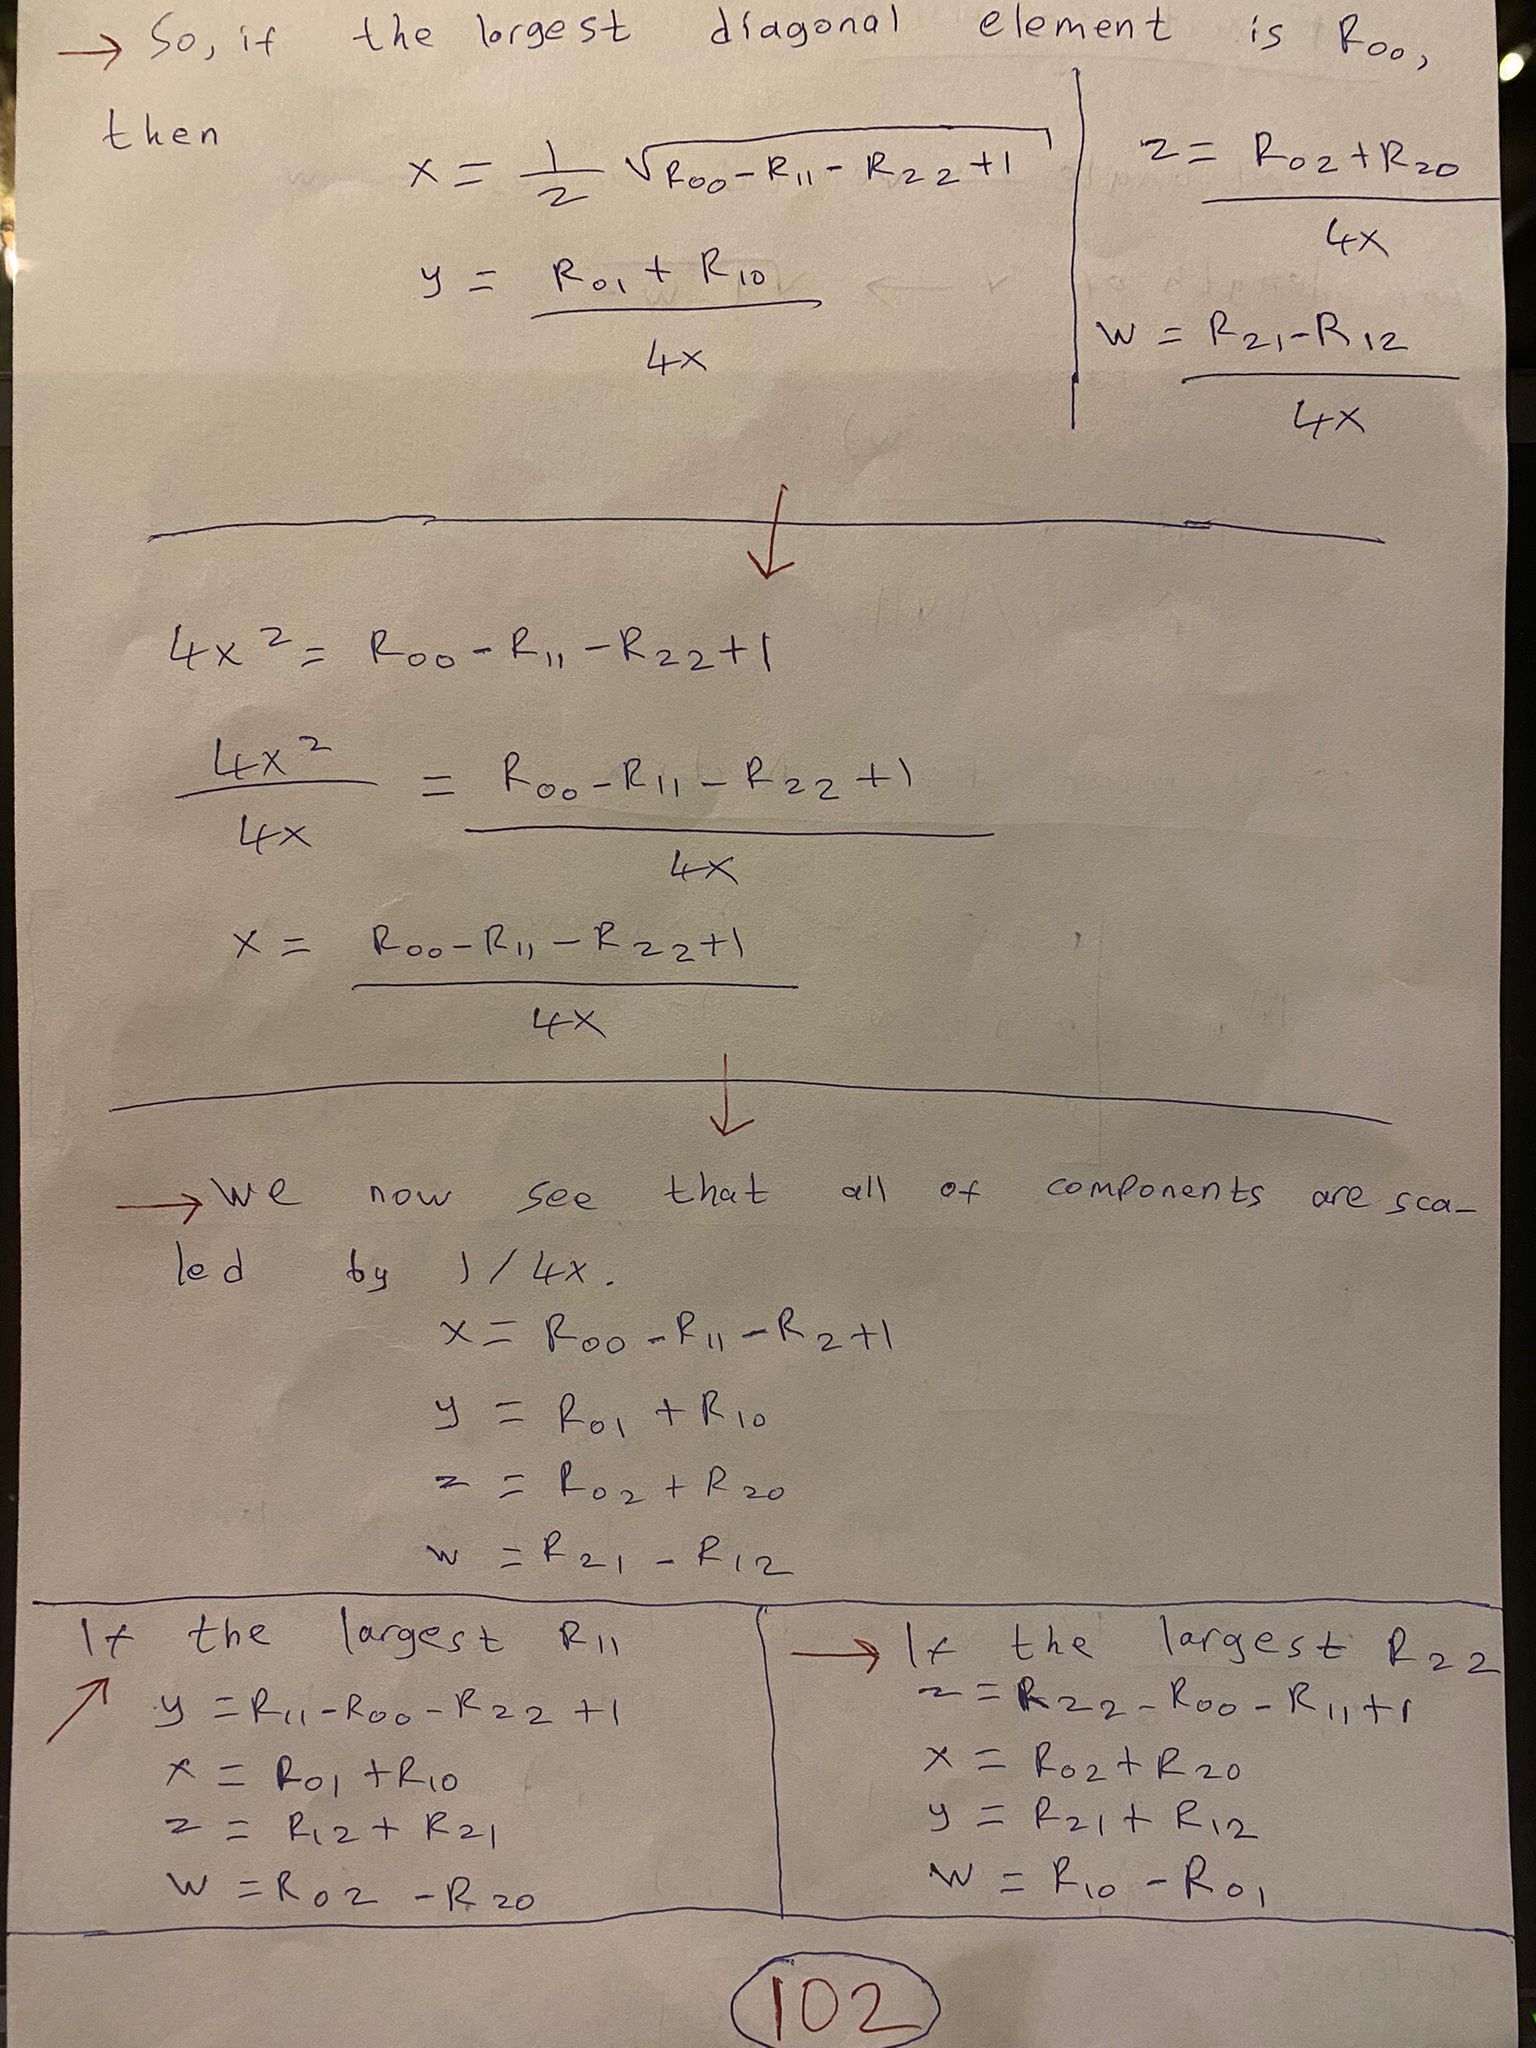 → So, if the largest diagonal element is R₀₀,
then
x = 1/2 √(R₀₀ - R₁₁ - R₂₂ + 1)
y = (R₀₁ + R₁₀) / 4x
z = (R₀₂ + R₂₀) / 4x
w = (R₂₁ - R₁₂) / 4x
↓
4x² = R₀₀ - R₁₁ - R₂₂ + 1
4x² / 4x = (R₀₀ - R₁₁ - R₂₂ + 1) / 4x
x = (R₀₀ - R₁₁ - R₂₂ + 1) / 4x
↓
→ We now see that all of components are sca-
led by 1/4x.
x = R₀₀ - R₁₁ - R₂ + 1
y = R₀₁ + R₁₀
z = R₀₂ + R₂₀
w = R₂₁ - R₁₂
If the largest R₁₁
y = R₁₁ - R₀₀ - R₂₂ + 1
x = R₀₁ + R₁₀
z = R₁₂ + R₂₁
w = R₀₂ - R₂₀
→ If the largest R₂₂
z = R₂₂ - R₀₀ - R₁₁ + 1
x = R₀₂ + R₂₀
y = R₂₁ + R₁₂
w = R₁₀ - R₀₁
102